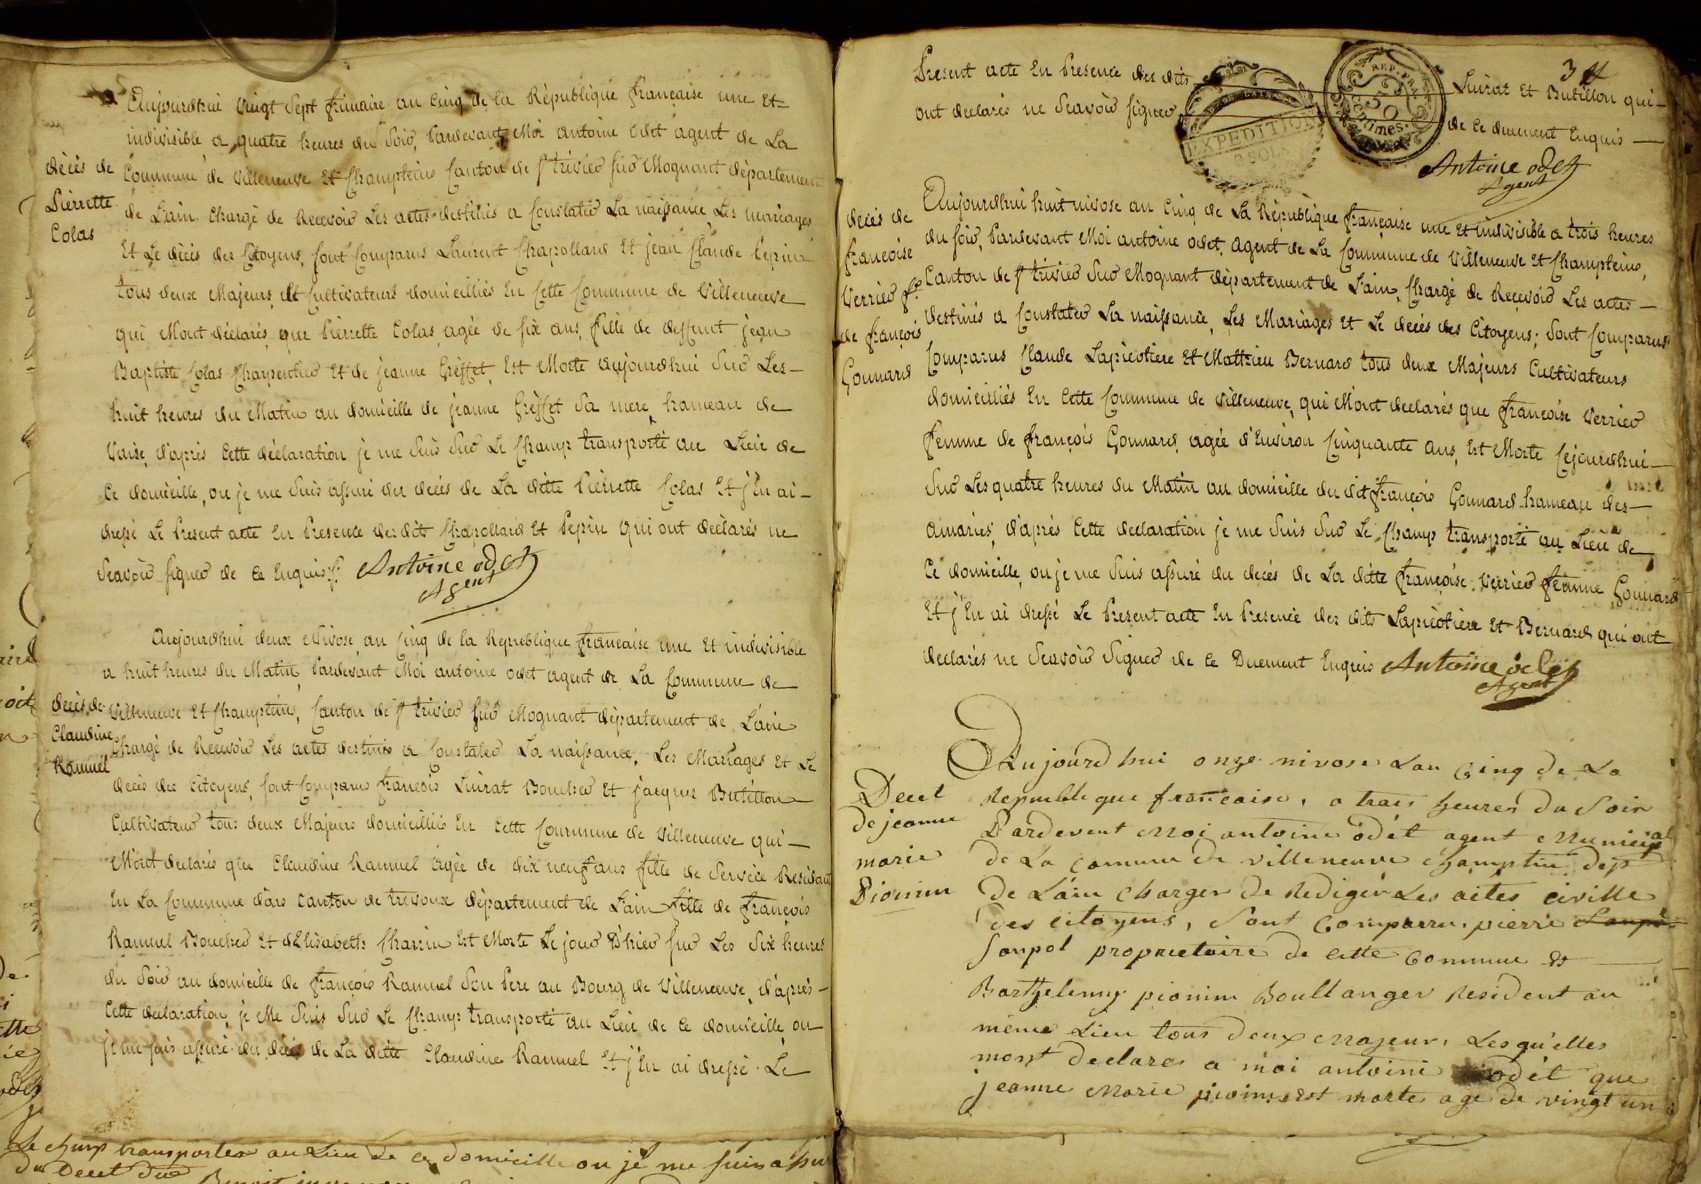 Aujourdhui vingt sept frimaire an cinq de la République française une Et
indivisible a quatre heures du Soir, Pardevant Moi antoine odet agent de La
Commune de Villeneuve Et Champtein Canton de St trivier sur Mognant département
de L'ain Chargé de Recevoir Les actes destinés a Constater La naissance Les mariages
Et Le décès des Citoyens, sont Comparus Laurent Chapollard Et jean Claude Pepin
tous deux Majeurs Et Cultivateurs domiciliés En Cette Commune de Villeneuve
qui Mont déclarés que Pierrette Colas agée de six ans fille de deffunt jean
Baptiste Colas Charpentier Et de jeanne Greffet, Est Morte aujourdhui Sur Les
huit heures du Matin au domicille de jeanne Greffet Sa mere hameau de
Vaise, d'après Cette déclaration je me Suis Sur Le Champ transporté au Lieu de
Ce domicille, ou je me Suis assuré du decés de La ditte Pierrette Colas Et j'En ai
dressé Le Present acte En Presence des dit Chapollard Et Pepin qui ont déclarés ne
Scavoir signer de Ce Enquis
Antoine odet
Agent
décès de
Pierrette
Colas
Aujourdhui deux Nivose an Cinq de la Republique francaise une Et indivisible
a huit heures du Matin, Pardevant Moi antoine odet agent de La Commune de
Villeneuve Et Champtein, Canton de St trivier sur Mognant département de L'ain
Chargé de Recevoir Les actes destinés a Constater La naissance, Les Mariages Et Le
decès des Citoyens, sont Comparus françois Luirat Boucher Et jacques Butillon
Cultivateur tous deux Majeurs domiciliés En Cette Commune de Villeneuve qui
Mont declarés que Claudine Ramuel agée de dix neuf ans fille de Service Residant
En La Commune dars canton de trevoux département de L'ain fille de françois
Ramuel Boucher Et d'Elisabeth Charrin Est Morte Le jour d'hier sur Les Six heures
du Soir au domicille de françois Ramuel Son Pere au Bourg de Villeneuve, d'après
Cette declaration, je Me Suis Sur Le Champ transporté au Lieu de Ce domicille, ou
je me suis assuré du decés de La ditte Claudine Ramuel Et j'En ai dressé Le
decès de
Claudine
Ramuel
Le champ transporter au Lieu de ce domicille ou je me suis assu
du Decet du Benoit
34
Present acte En Presence des dits Luirat Et Butillon qui
ont declarés ne Scavoir signer de Ce duement Enquis
EXPEDITION
REP. FRA.
Antoine odet
Agent
Aujourdhui huit nivose an Cinq de La République française une Et indivisible a trois heures
du soir, Pardevant Moi antoine odet, agent de La Commune de Villeneuve Et Champtein,
Canton de St trivier Sur Mognant département de L'ain, Chargé de Recevoir Les actes
destinés a Constater La naissance, Les Mariages Et Le decés des Citoyens; Sont Comparus
Comparus Claude Lapierre Et Mathieu Bernard tous deux Majeurs Cultivateurs
domiciliés En Cette Commune de Villeneuve, qui Mont declarés que françoise Verrier
femme de françois Gonnard agée d'Environ Cinquante ans, Est Morte Cejourdhui
Sur Les quatre heures du Matin au domicille du dit françois Gonnard hameau des
amaries, d'après Cette declaration je me Suis Sur Le Champ transporté au Lieu de
Ce domicille, ou je me Suis assuré du decés de La ditte françoise Verrier femme Gonnard
Et j'En ai dressé Le Present acte En Presence des dits Et Bernard qui ont
declarés ne Scavoir Signer de Ce Duement Enquis
Antoine odet
Agent
decés de
francoise
Verrier fe
de françois
Gonnard
Aujourd hui onze nivose Lan Cinq de La
Republique francaise, a trais heures du Soir
Pardevent Moi antoine odét agent Municipal
de La Commune de villeneuve champtin dept
de L'ain Charger de Rediger Les actes civille
des Citoyens, Sont Comparru pierre
Sonpol proprietaire de Cette Commune Et
Barthelemy pionin Boullanger Resident au
même Lieu tous deux Majeur, Lesquelles
mont Declares a moi antoine odét que
jeanne Marie pionin est morte age de vingt un
Decet
de jeanne
marie
Pionin